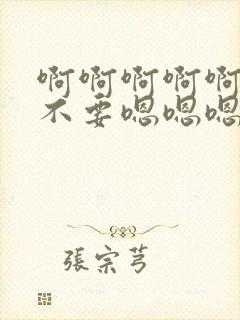 啊啊啊啊啊
不要嗯嗯嗯
張宗芎